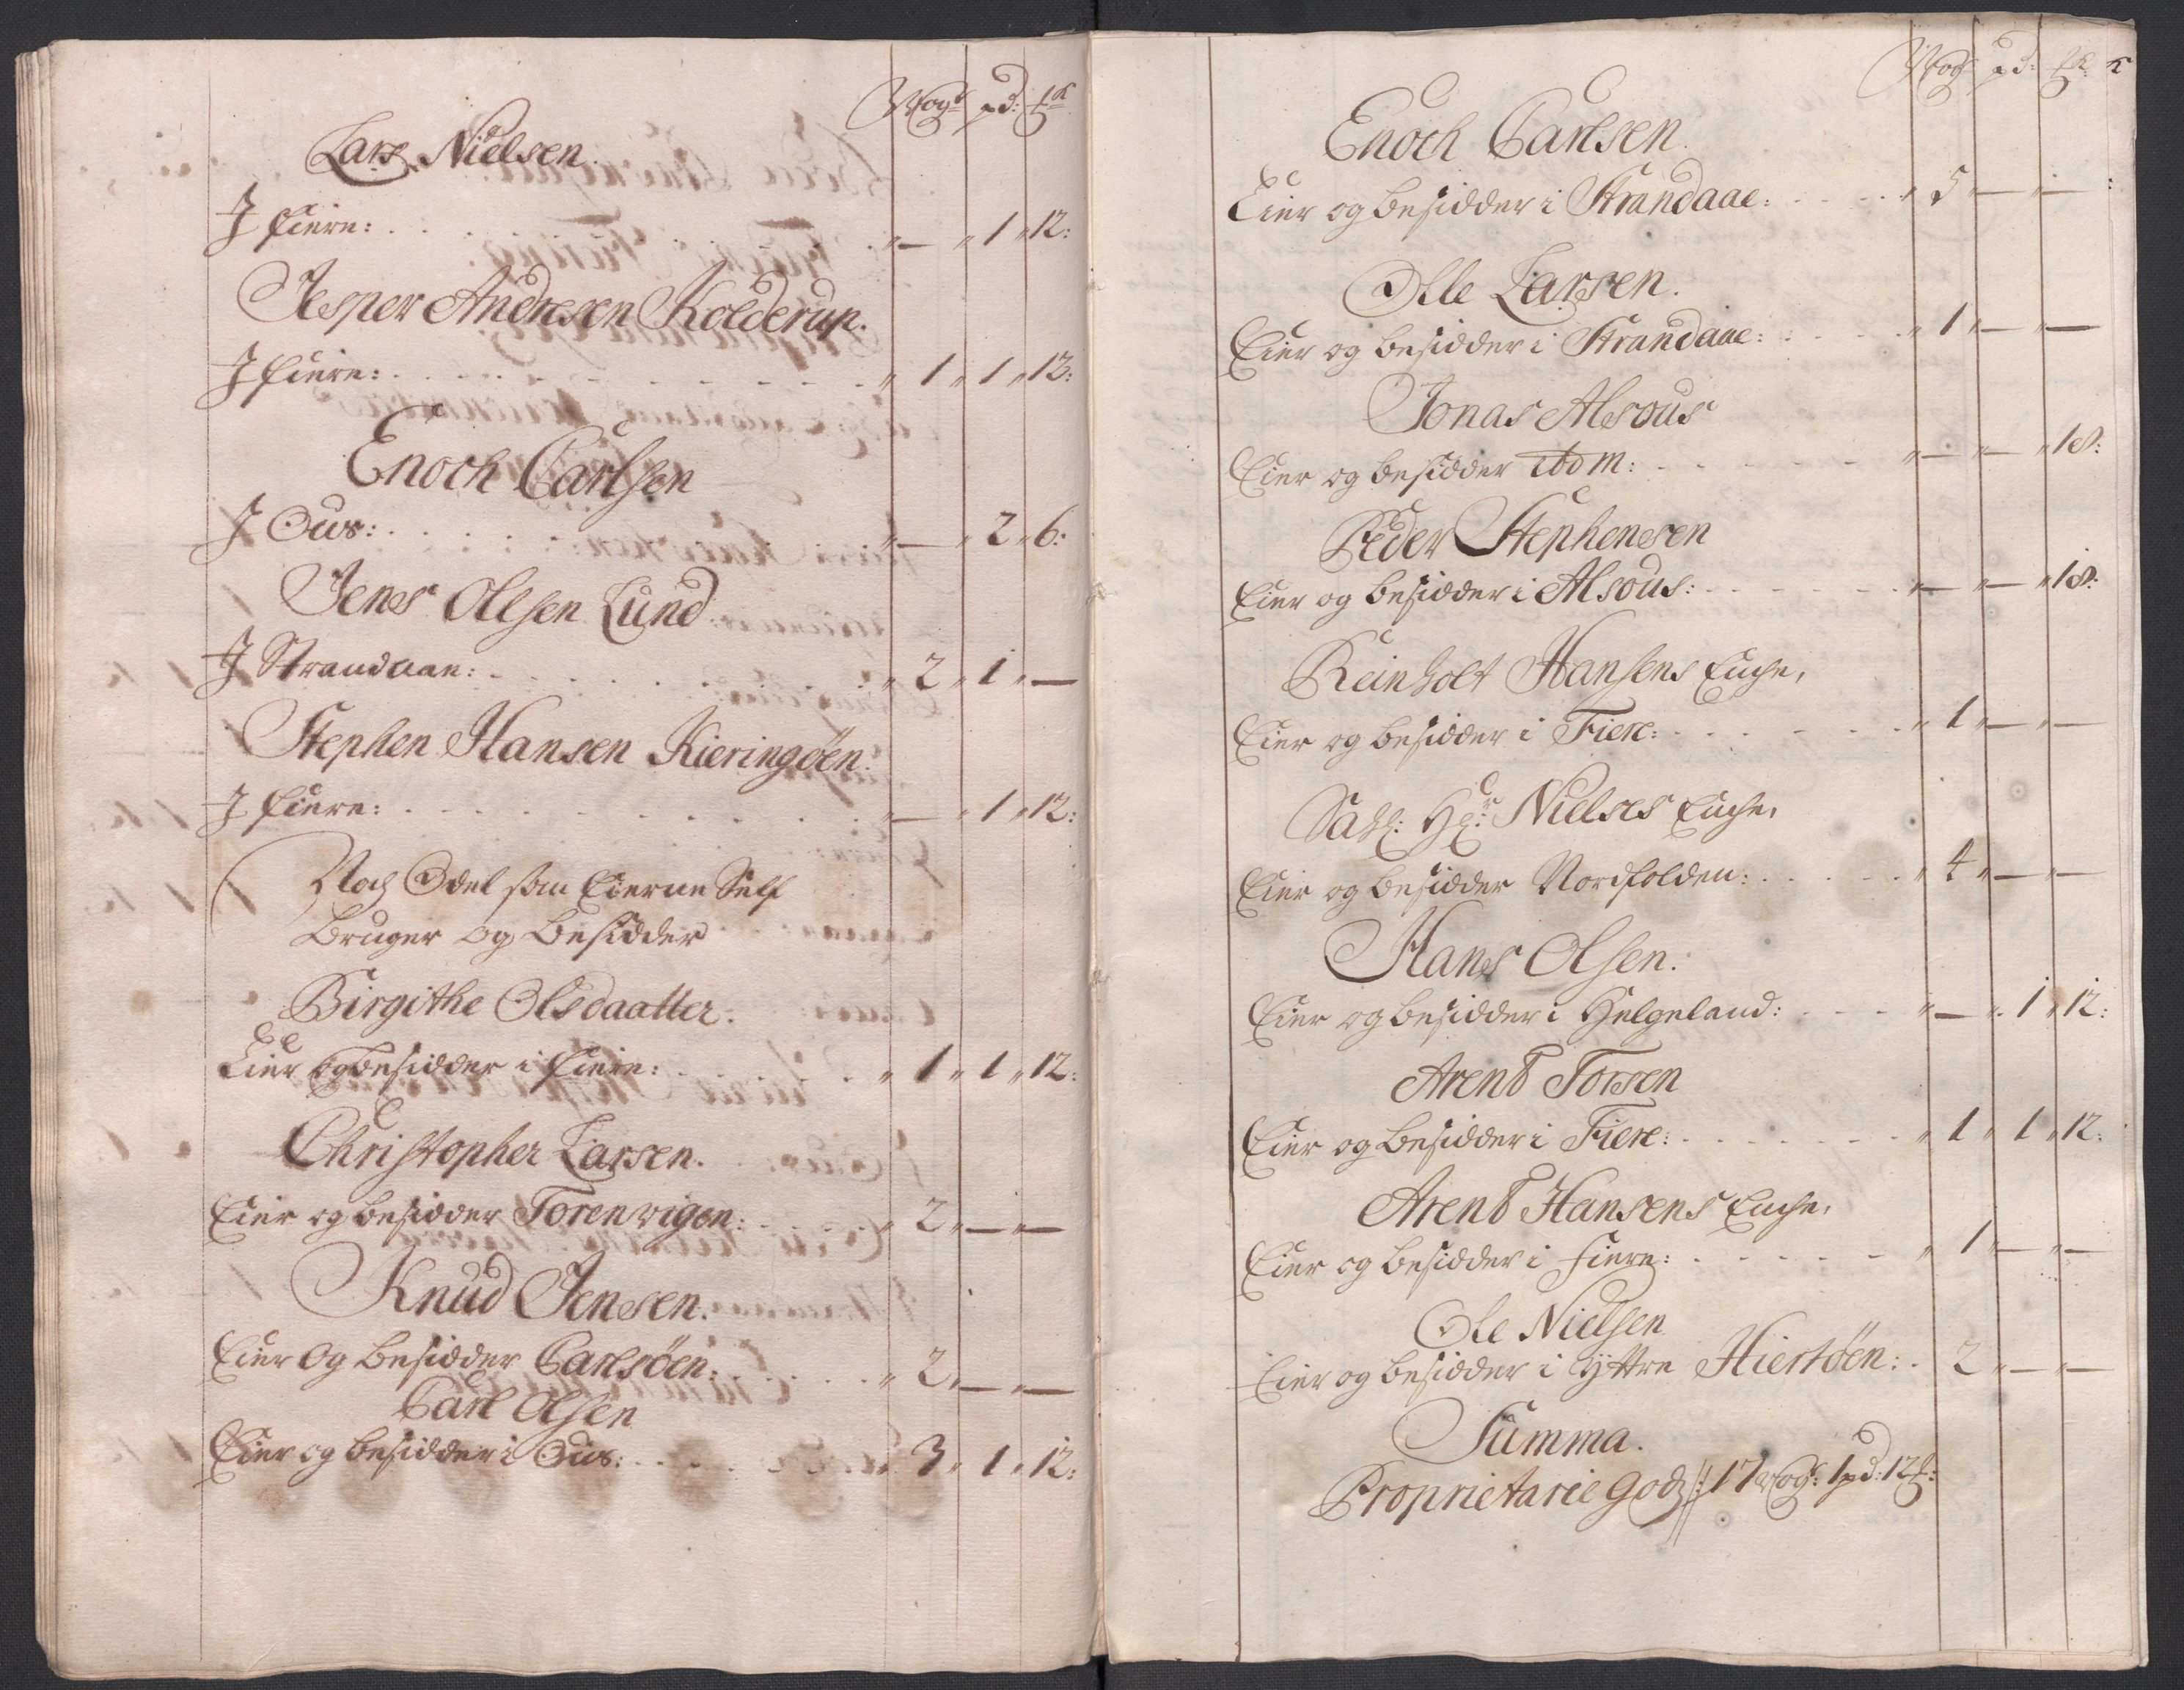 Wog: pd: ℔
Lars Nielsen.
J Fiere: . . . „ — „ 1 „ 12:
Jesper Andresen Kolderup.
J Fiere: . . . „ 1 „ 1 „ 12:
Enoch Carlsen
J Øus: . . . „ — „ 2 „ 6:
Jens Olsen Lund
J Strandaae: . . . „ 2 „ 1 „ —
Stephen Hansen Kieringøen:
J Fiere: . . . „ — „ 1 „ 12:
Noch Odel som Eierne Self
Bruger og Besidder
Birgithe Olsdaatter.
Eier og besidder i Fiere: . . . „ 1 „ 1 „ 12:
Christopher Larsen.
Eier og besidder Torenvigen: . . . „ 2 „ — „ —
Knud Jensen.
Eier og Besidder Carlsöen: . . . „ 2 „ — „ —
Carl Olsen
Eier og besidder i Øus: . . . „ 3 „ 1 „ 12:
Wog: pd: ℔:
Enoch Carlsen.
Eier og besidder i Strandaae: . . . „ 5 „ — „ —
Olle Larsen.
Eier og besidder i Strandaae: . . . „ 1 „ — „ —
Jonas Alsous
Eier og besidder ibdm: . . . „ — „ — „ 18:
Peder Stephensen
Eier og besidder i Alsous: . . . „ — „ — „ 18:
Reinholt Hansens Enche,
Eier og besidder i Fiere: . . . „ 1 „ — „ —
Sahl: Hr: Nielses Enche,
Eier og besidder Nordfolden: . . . „ 4 „ — „ —
Hans Olsen.
Eier og besidder i Helgeland: . . . „ — „ 1 „ 12:
Arent Torsen
Eier og besidder i Fiere: . . . „ 1 „ 1 „ 12:
Arent Hansens Enche,
Eier og besidder i Fiere: . . . „ 1 „ — „ —
Ole Nielsen
Eier og besidder i Yttre Hiertöen: . 2 „ — „ —
Summa.
Proprietarie Godz // 17 wog: 1 pd: 12 ℔: